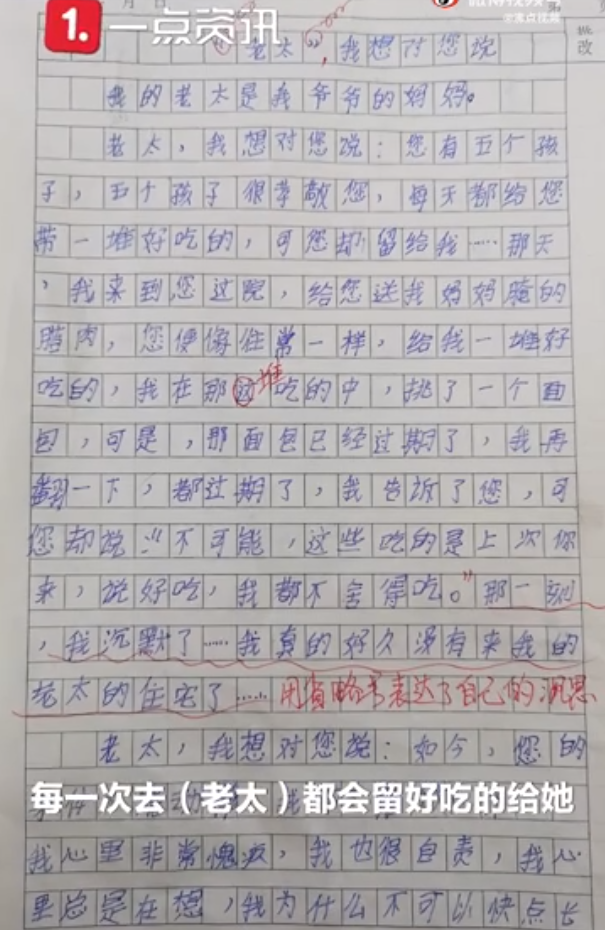 1. 一点资讯
批改
"老太",我想对您说
我的老太是我爷爷的妈妈。
老太,我想对您说:您有五个孩
子,五个孩子很孝敬您,每天都给您
带一堆好吃的,可您却留给我……那天
,我来到您过院,给您送我妈妈腌的
腊肉,您便像往常一样,给我一堆好
吃的,我在那这堆吃的中,挑了一个面
包,可是,那面包已经过期了,我再
翻一下,都过期了,我告诉了您,可
您却说:"不可能,这些吃的是上次你
来,说好吃,我都不舍得吃。"那一刻
,我沉默了……我真的好久没有来我的
老太的住宅了……用省略号表达了自己的沉思
老太,我想对您说:如今,您的
每一次去(老太)都会留好吃的给她
我心里非常愧疚,我也很自责,我心
里总是在想,我为什么不可以快点长